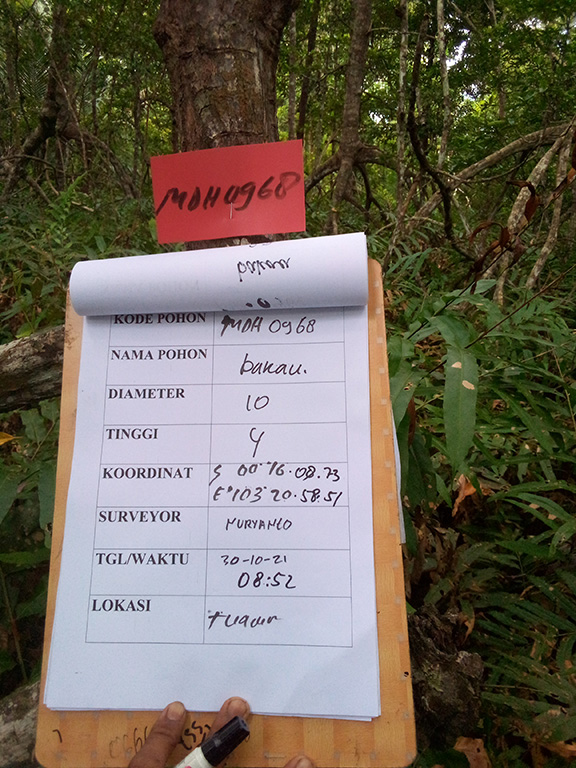 MDH0968
bakau
KODE POHON MDH 0968
NAMA POHON bakau.
DIAMETER 10
TINGGI 4
KOORDINAT S 00°16.08.73
E°103°20.58.51
SURVEYOR MURYANTO
TGL/WAKTU 30-10-21
08:52
LOKASI